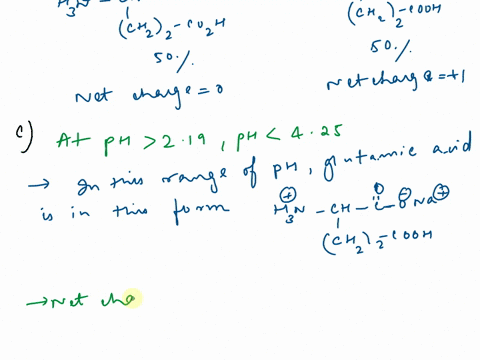 H3N CH
(CH2)2-CO2H (CH2)2-COOH
50% 50%
Net charge=0 Net charge=+1
c) At pH > 2.19, pH < 4.25
→ In this range of pH, glutamic acid
is in this form H3N-CH-C-ONa
+ O - +
(CH2)2-COOH
→Net cha